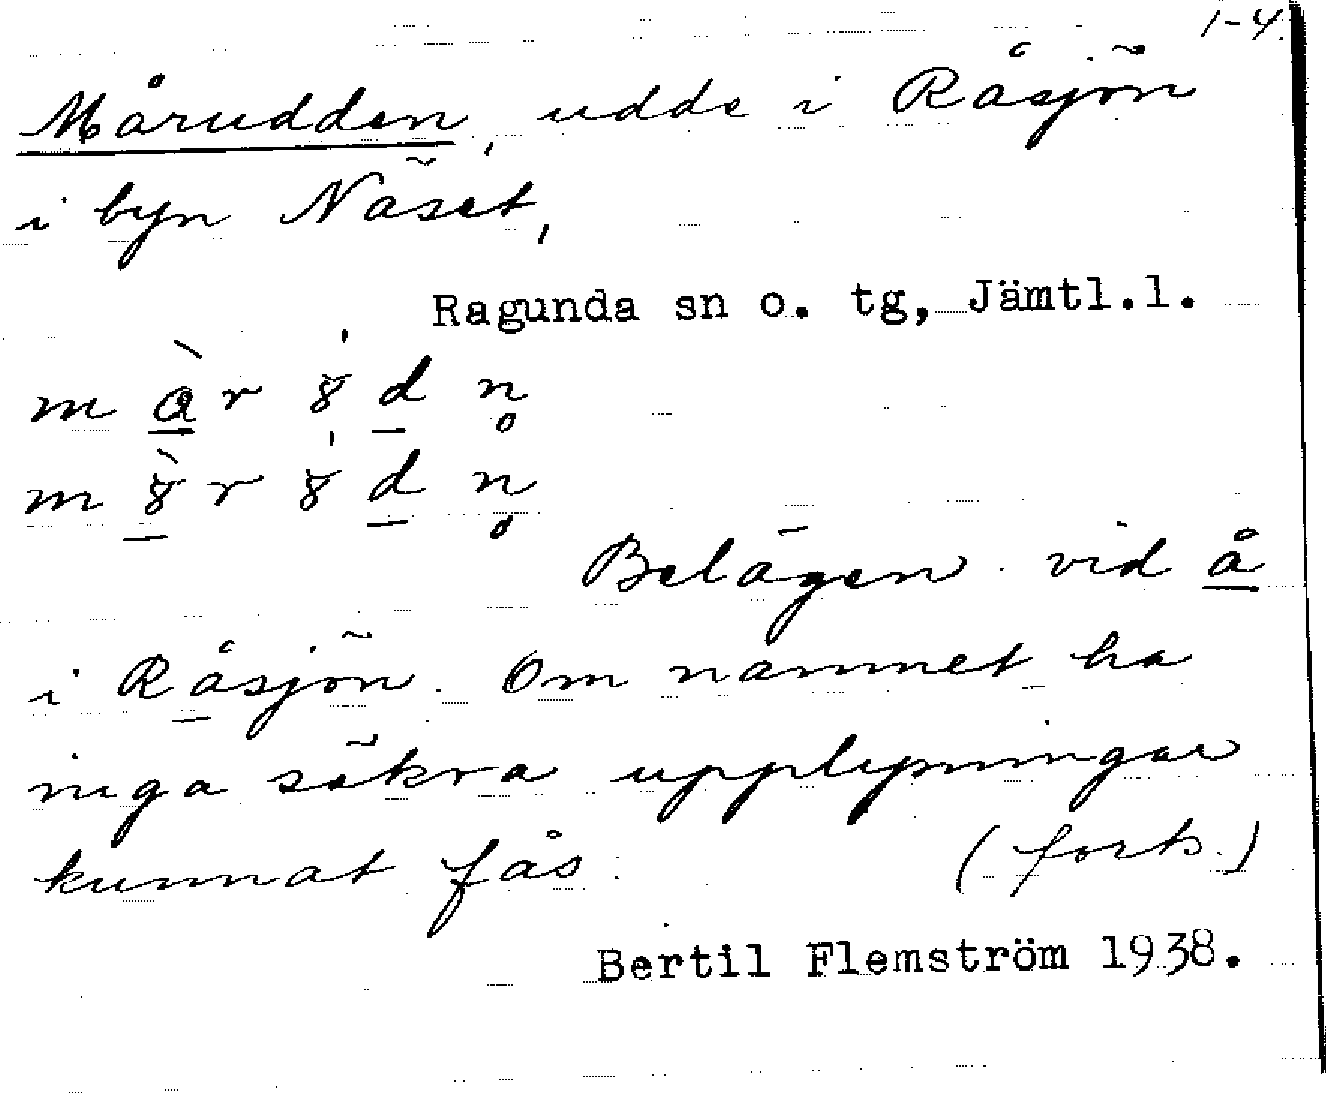 1-4.
Mårudden, udde i Råsjön
i byn Näset,
Ragunda sn o. tg, Jämtl.l.
Belägen vid å
i Råsjön. Om namnet ha
inga säkra upplysningar
kunnat fås. (forts.)
Bertil Flemström 1938.